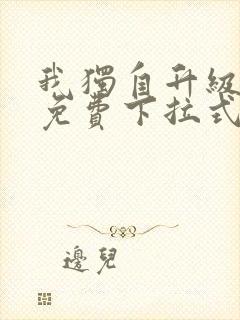 我獨自升級
免費下拉式
邊兒